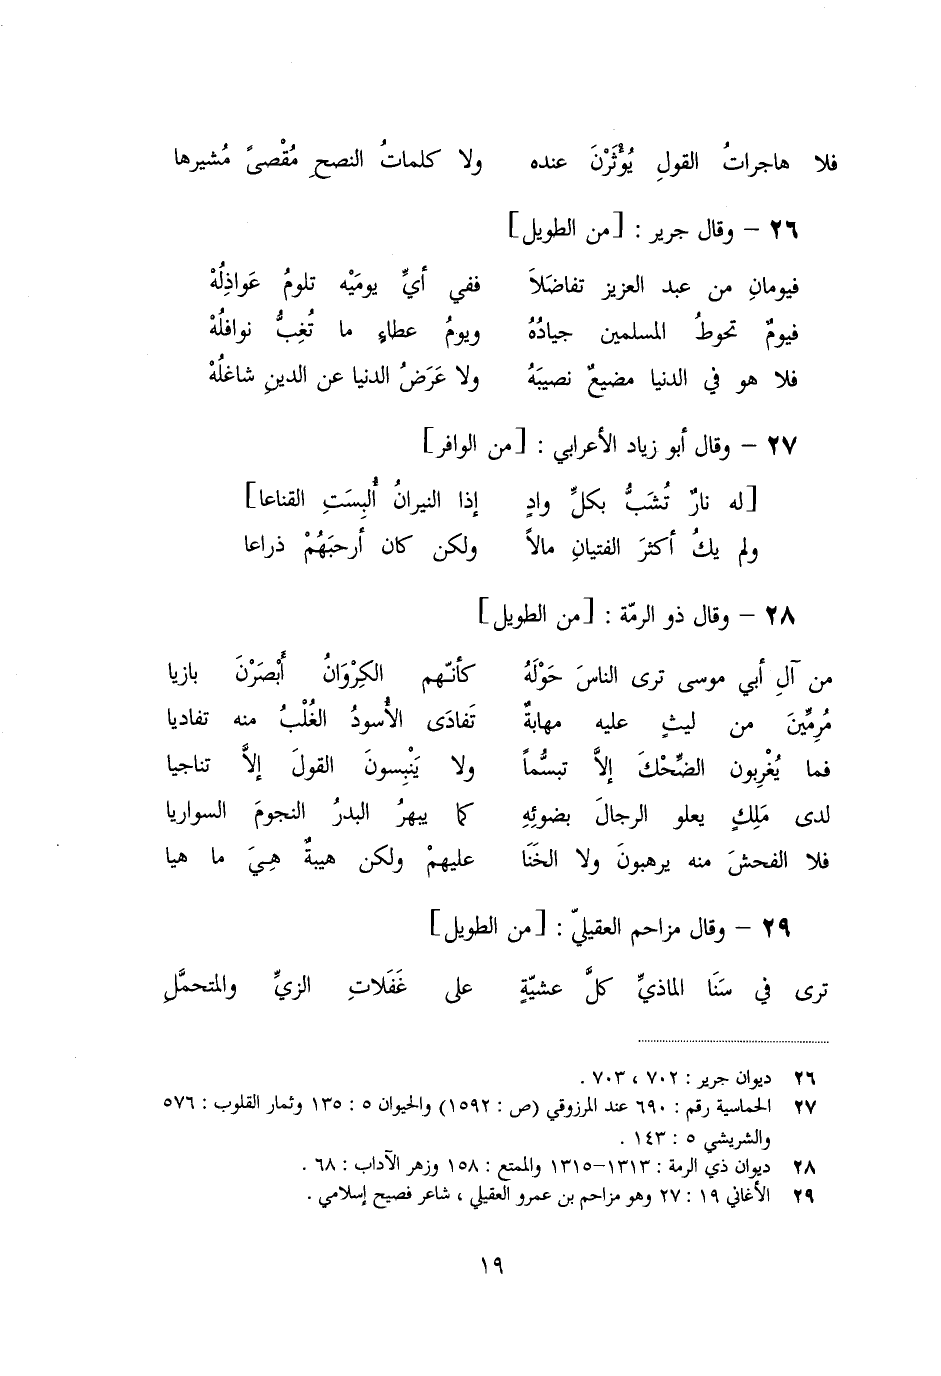 فلا هاجراتُ القولِ يُؤْثَرْنَ عنده ولا كلماتُ النصحِ مُقْصىً مُشيرها
٢٦ – وقال جرير : [من الطويل]
فيومانِ من عبد العزيز تفاضَلاَ ففي أيِّ يوميْه تلومُ عَواذِلُهْ
فيومٌ تحوطُ المسلمين جيادُهُ ويومُ عطاءٍ ما تُغِبُّ نوافلُهْ
فلا هو في الدنيا مضيعٌ نصيبَهُ ولا عَرَضُ الدنيا عن الدينِ شاغلُهْ
٢٧ – وقال أبو زياد الأعرابي : [من الوافر]
[له نارٌ تُشَبُّ بكلِّ وادٍ إذا النيرانُ أُلبِسَتِ القناعا]
ولم يكُ أكثرَ الفتيانِ مالاً ولكن كان أرحبَهُمْ ذراعا
٢٨ – وقال ذو الرمّة : [من الطويل]
من آلِ أبي موسى ترى الناسَ حَوْلَهُ كأنّهم الكِرْوَانُ أَبْصَرْنَ بازيا
مُرِمِّينَ من ليثٍ عليه مهابةٌ تَفادَى الأُسودُ الغُلْبُ منه تفاديا
فما يُغْرِبون الضِّحْكَ إلاَّ تبسُّماً ولا يَنْبِسونَ القولَ إلاَّ تناجيا
لدى مَلِكٍ يعلو الرجالَ بضوئِهِ كما يبهرُ البدرُ النجومَ السواريا
فلا الفحشَ منه يرهبونَ ولا الخَنَا عليهمْ ولكن هيبةٌ هِيَ ما هيا
٢٩ – وقال مزاحم العقيليّ : [من الطويل]
ترى في سَنَا الماذيِّ كلَّ عشيّةٍ على غَفَلاتِ الزيِّ والمتحمَّلِ
٢٦ ديوان جرير : ٧٠٢ ، ٧٠٣ .
٢٧ الحماسية رقم : ٦٩٠ عند المرزوقي (ص : ١٥٩٢) والحيوان ٥ : ١٣٥ وثمار القلوب : ٥٧٦
والشريشي ٥ : ١٤٣ .
٢٨ ديوان ذي الرمة : ١٣١٣–١٣١٥ والممتع : ١٥٨ وزهر الآداب : ٦٨ .
٢٩ الأغاني ١٩ : ٢٧ وهو مزاحم بن عمرو العقيلي ، شاعر فصيح إسلامي .
١٩